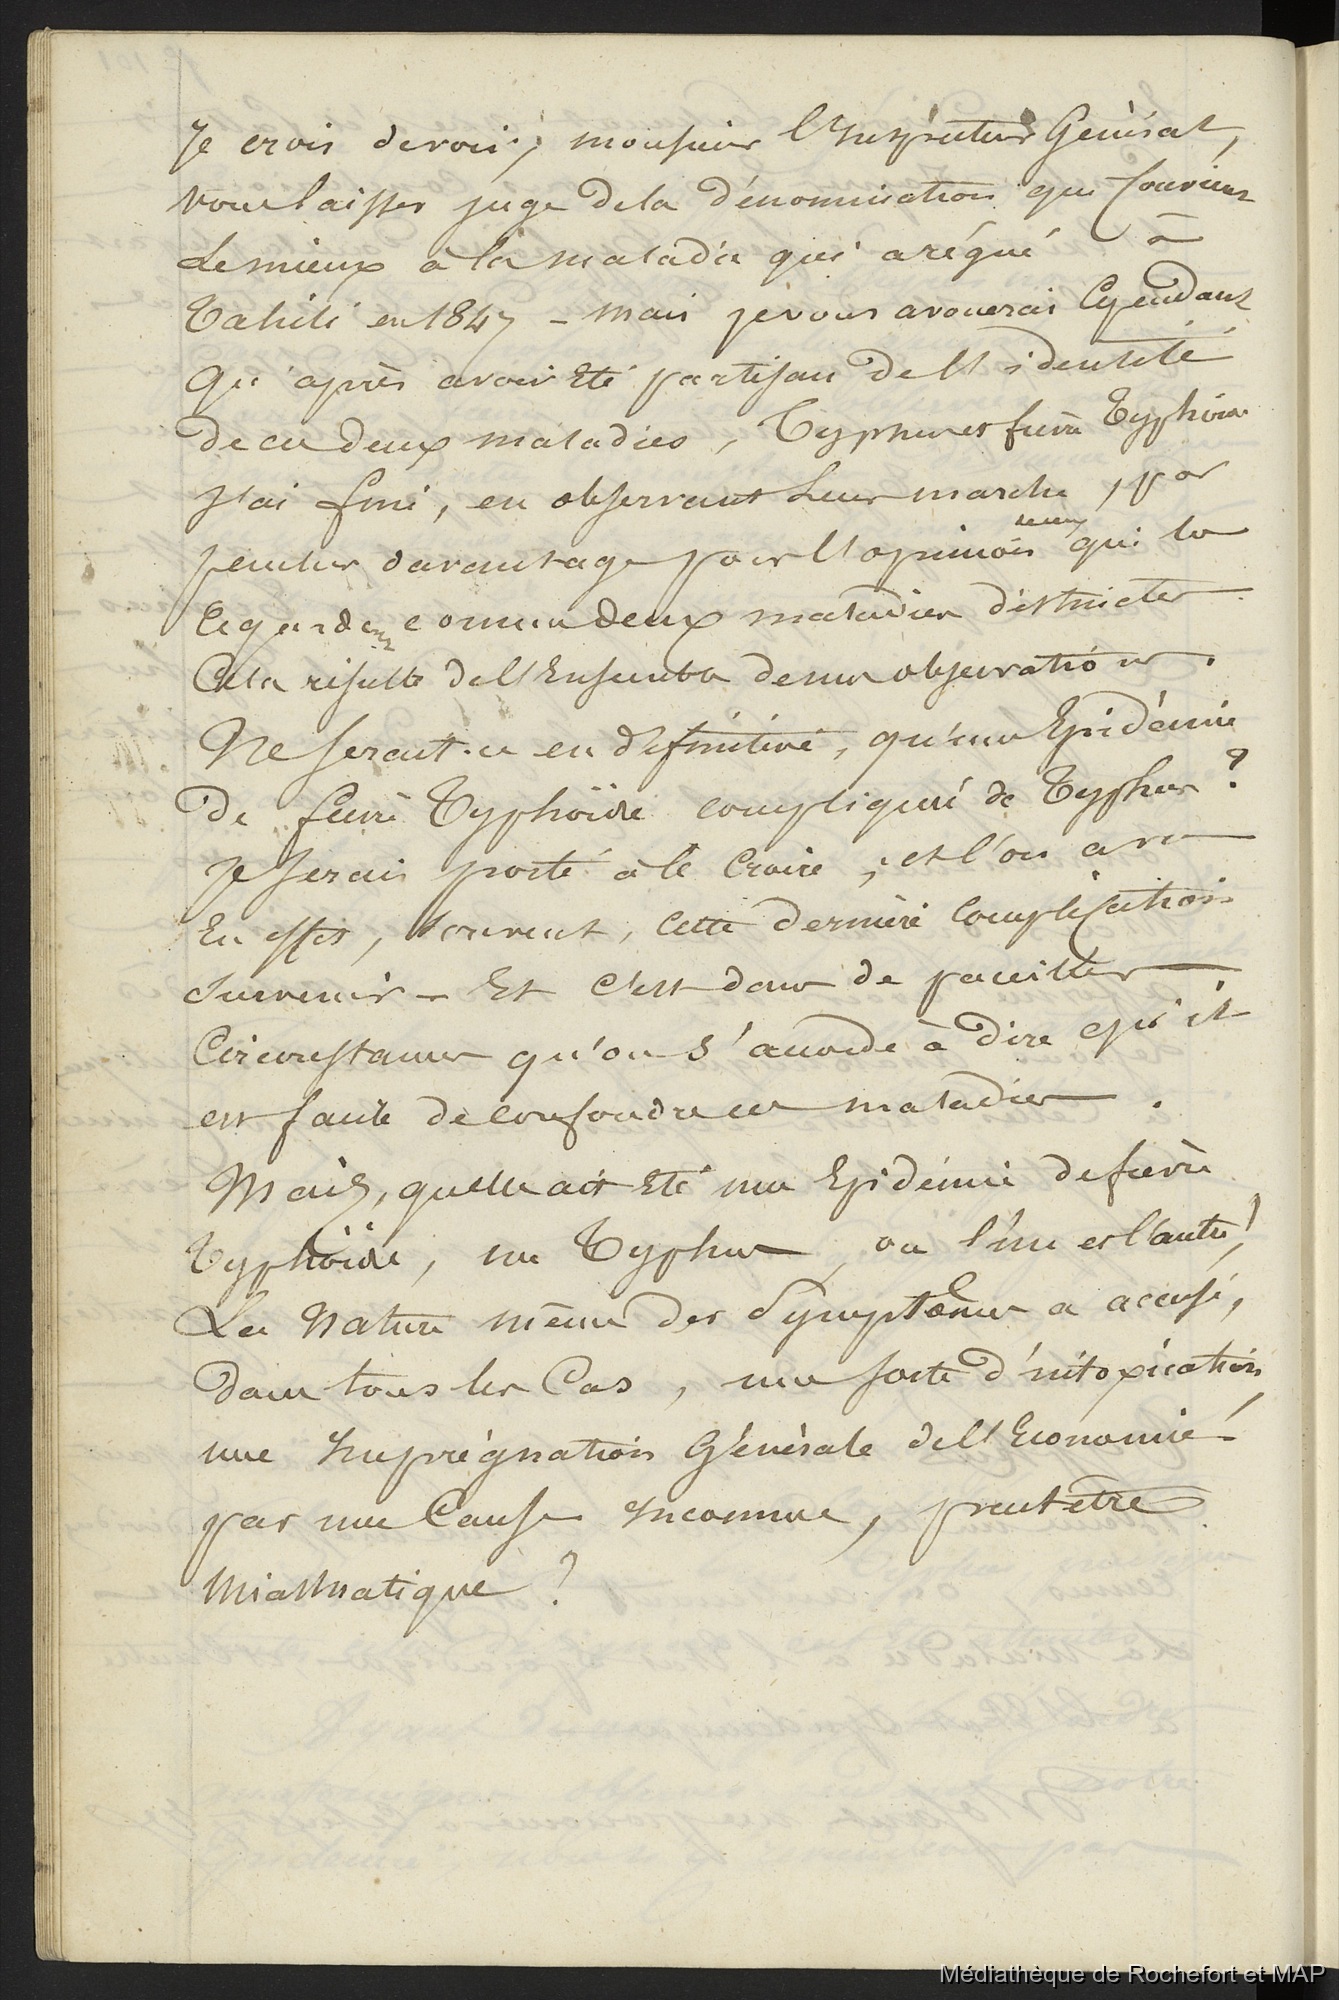 Je crois devoir, monsieur l'Inspecteur Général,
vous laisser juge de la dénomination qui convient
le mieux à la maladie qui a régné à
Tahiti en 1847 - mais je vous avouerai cependant
qu'après avoir été partisan de l'identité
de ces deux maladies, Typhus et fièvre Typhoïde
j'ai fini, en observant leur marche, par
pencher davantage pour l'opinion de ceux qui les
regardent comme deux maladies distinctes
Cela résulte de l'Ensemble de mes observations.
Ne serait-ce en définitive, qu'une Epidémie
de fièvre Typhoïde compliquée de Typhus ?
Je serais porté à le croire ; et l'on a vu
En effet, souvent, cette dernière complication
survenir - Et c'est dans de pareilles
Circonstances qu'on s'accorde à dire qu'il
est facile de confondre ces maladies.
Mais, quelle ait été une Epidémie de fièvre
Typhoïde, un Typhus, ou l'une et l'autre !
La Nature même des Symptômes a accusé,
dans tous les Cas, une sorte d'intoxication,
une Imprégnation Générale de l'Economie
par une Cause Inconnue, peut être
Miasmatique ?
Médiathèque de Rochefort et MAP